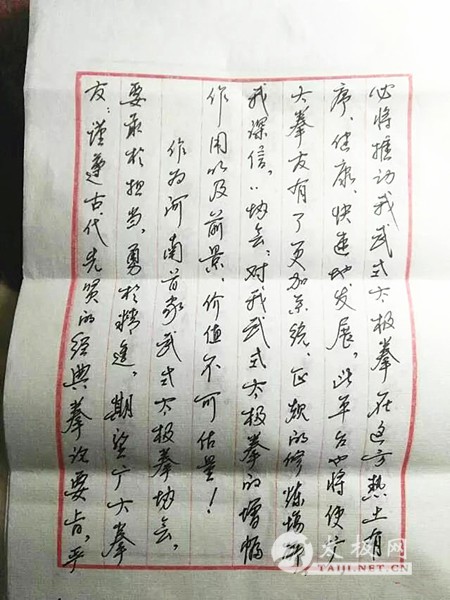 必将推动我武式太极拳在这方热土有
序、健康、快速地发展。此平台也将使广
大拳友有了更加系统、正规的修炼场所
我深信，"协会"对我武式太极拳的增幅
作用以及前景、价值不可估量！
作为河南首家武式太极拳协会，
要敢于担当，勇于精进，期望广大拳
友：谨遵古代先贤的经典拳论要旨，平
太极网
TAIJI.NET.CN